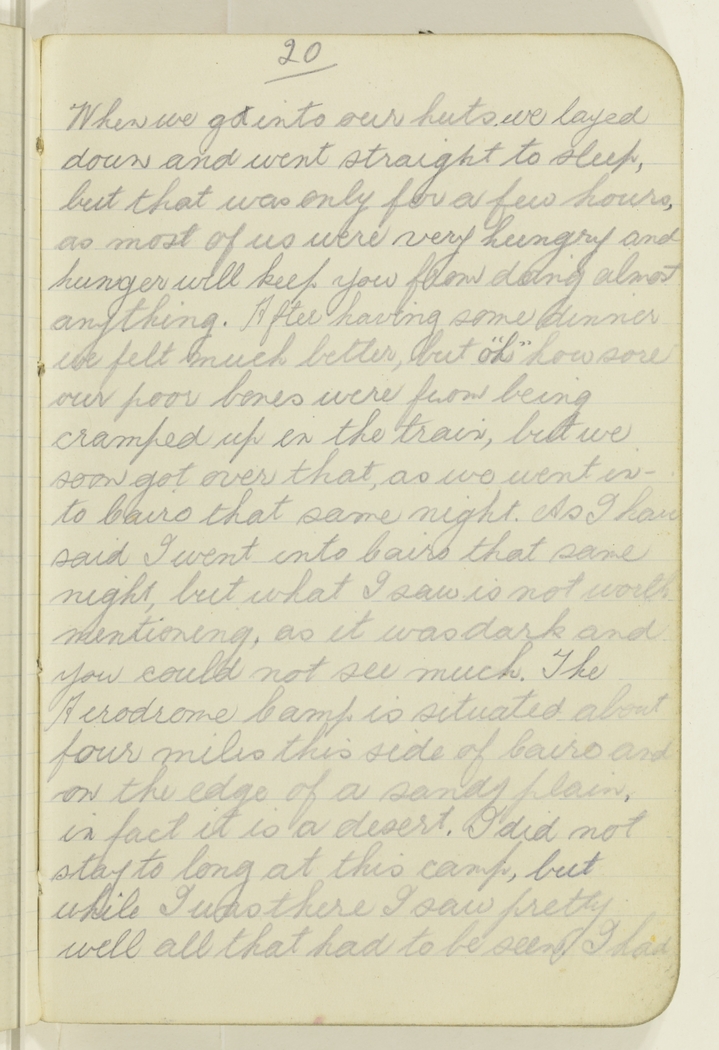 20
When we got into our huts we layed
down and went straight to sleep,
but that was only for a few hours,
as most of us were very hungry and
hunger will keep you from doing almost
anything. After having some dinner
we felt much better, but "oh" how sore
our poor bones were from being
cramped up in the train, but we
soon got over that, as we went in-
to Cairo that same night. As I have
said I went into Cairo that same
night, but what I saw is not worth
mentioning, as it was dark and
you could not see much. The
Aerodrome Camp is situated about
four miles this side of Cairo and
on the edge of a sandy plain,
in fact it is a desert. I did not
stay to long at this camp, but
while I was there I saw pretty
well all that had to be seen. I had